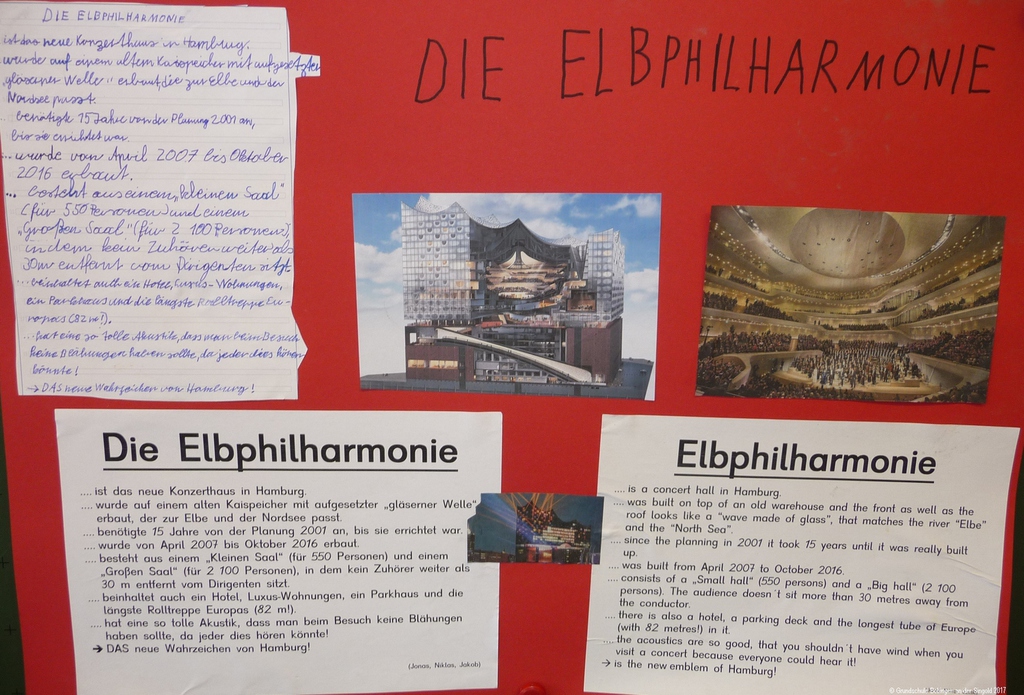 DIE ELBPHILHARMONIE
ist das neue Konzerthaus in Hamburg.
wurde auf einem altem Kaispeicher mit aufgesetzten
„gläserner Welle" erbaut, die zur Elbe und der
Nordsee passt.
benötigte 15 Jahre von der Planung 2001 an,
bis sie errichtet war.
... wurde von April 2007 bis Oktober
2016 erbaut.
... besteht aus einem „kleinen Saal"
(für 550 Personen) und einem
„Großen Saal" (für 2 100 Personen),
in dem kein Zuhörer weiter als
30m entfernt vom Dirigenten sitzt
... beinhaltet auch ein Hotel, Luxus-Wohnungen,
ein Parkhaus und die längste Rolltreppe Eu-
ropas (82 m!).
... hat eine so tolle Akustik, dass man beim Besuch
keine Blähungen haben sollte, da jeder dies hören
könnte!
→ DAS neue Wahrzeichen von Hamburg!
DIE ELBPHILHARMONIE
Die Elbphilharmonie
.... ist das neue Konzerthaus in Hamburg.
.... wurde auf einem alten Kaispeicher mit aufgesetzter „gläserner Welle"
erbaut, der zur Elbe und der Nordsee passt.
.... benötigte 15 Jahre von der Planung 2001 an, bis sie errichtet war.
.... wurde von April 2007 bis Oktober 2016 erbaut.
.... besteht aus einem „Kleinen Saal" (für 550 Personen) und einem
„Großen Saal" (für 2 100 Personen), in dem kein Zuhörer weiter als
30 m entfernt vom Dirigenten sitzt.
.... beinhaltet auch ein Hotel, Luxus-Wohnungen, ein Parkhaus und die
längste Rolltreppe Europas (82 m!).
.... hat eine so tolle Akustik, dass man beim Besuch keine Blähungen
haben sollte, da jeder dies hören könnte!
→ DAS neue Wahrzeichen von Hamburg!
(Jonas, Niklas, Jakob)
Elbphilharmonie
.... is a concert hall in Hamburg.
.... was built on top of an old warehouse and the front as well as the
roof looks like a "wave made of glass", that matches the river "Elbe"
and the "North Sea".
.... since the planning in 2001 it took 15 years until it was really built
up.
.... was built from April 2007 to October 2016.
.... consists of a „Small hall" (550 persons) and a „Big hall" (2 100
persons). The audience doesn´t sit more than 30 metres away from
the conductor.
.... there is also a hotel, a parking deck and the longest tube of Europe
(with 82 metres!) in it.
.... the acoustics are so good, that you shouldn´t have wind when you
visit a concert because everyone could hear it!
→ is the new emblem of Hamburg!